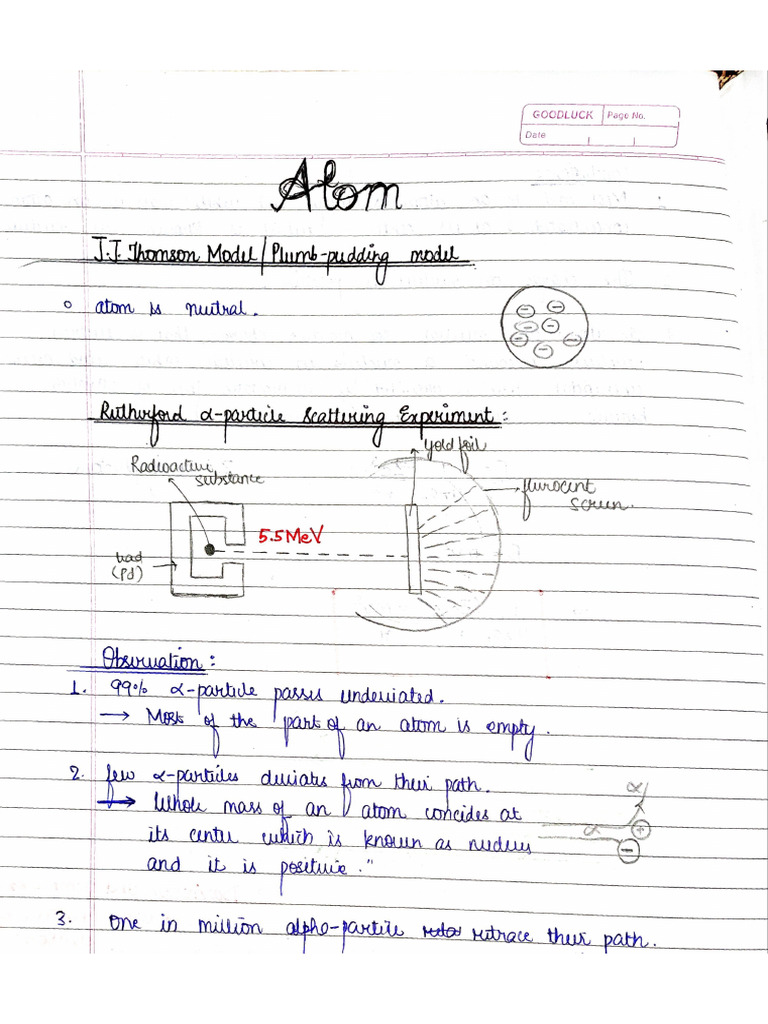 GOODLUCK Page No.
Date
Atom
J.J. Thomson Model / Plumb-pudding model
o atom is neutral.
Rutherford α-particle Scattering Experiment :
gold foil
Radioactive
substance
flurocent
screen
5.5 MeV
lead
(Pd)
Observation :
1. 99% α-particle passes undeviated.
→ Most of the part of an atom is empty.
2. few α-particles deviates from their path.
→ Whole mass of an atom concides at
its centre which is known as nucleus
and it is positive."
α
α
+
−
3. One in million alpha-particle retrace their path.